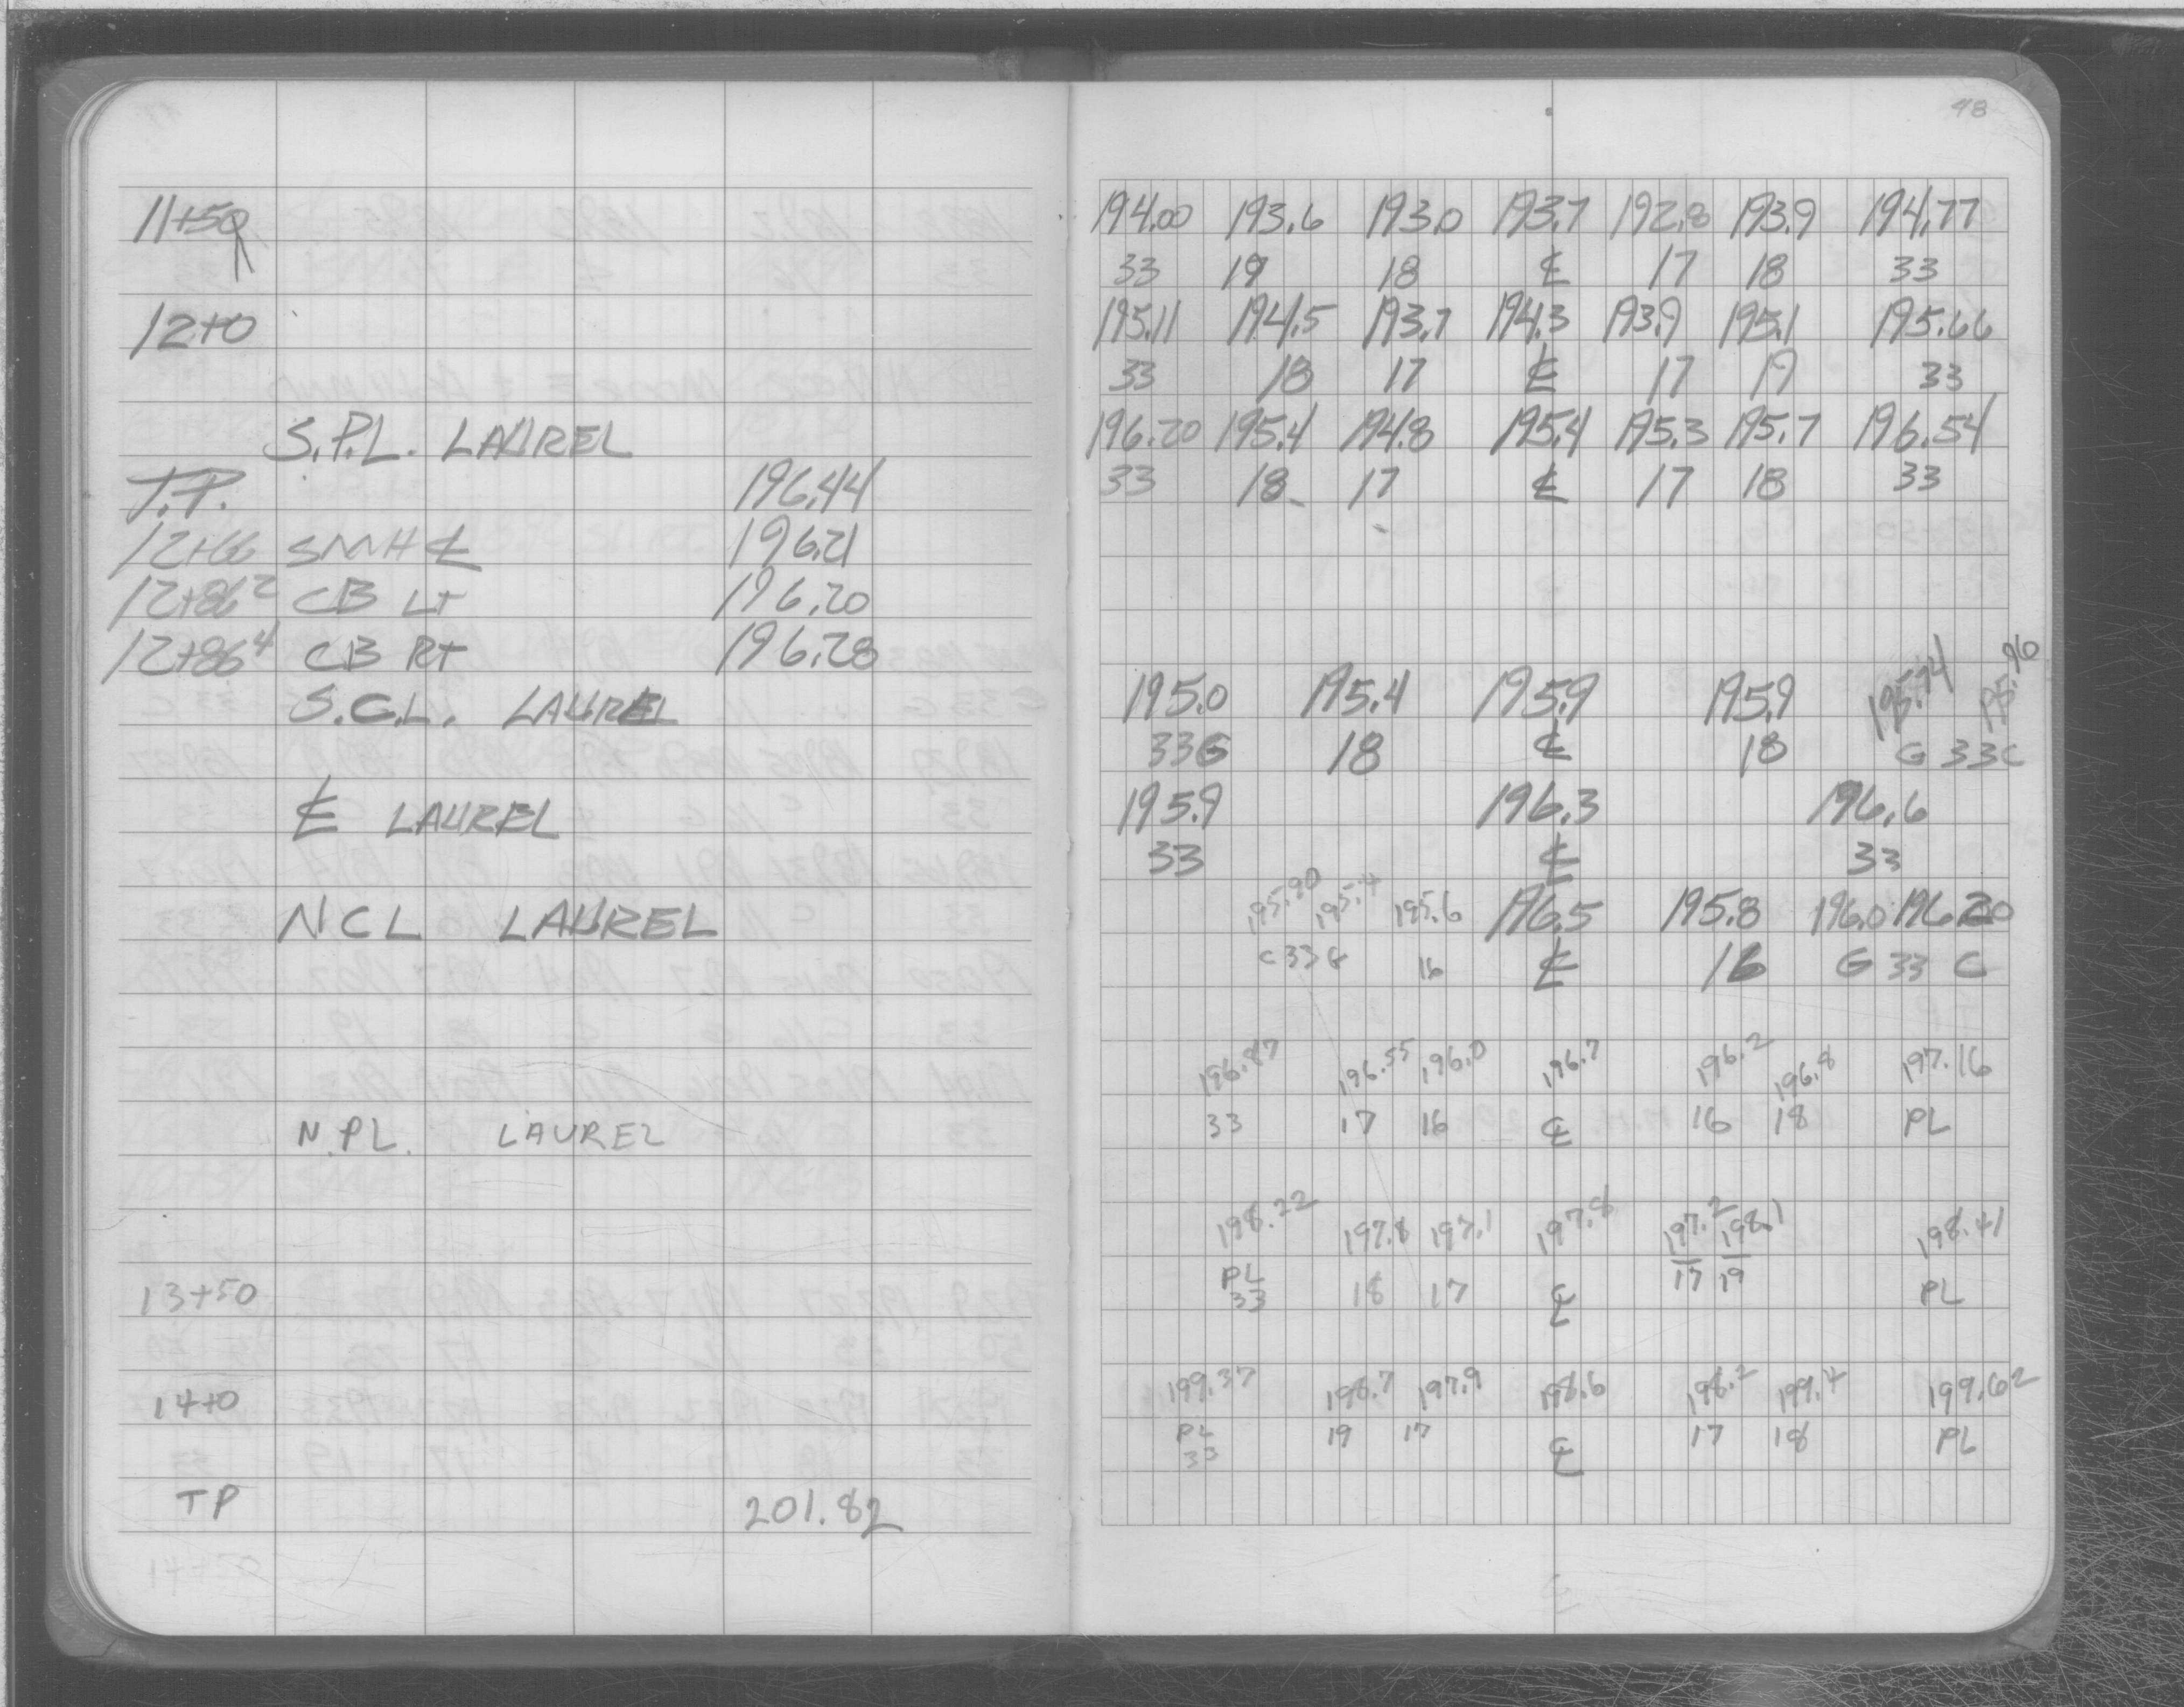 48
11+50 194.00 193.6 193.0 193.7 192.8 193.9 194.77
33 19 18 ℄ 17 18 33
12+0 195.11 194.5 193.7 194.3 193.9 195.1 195.66
33 18 17 ℄ 17 19 33
S.P.L. LAUREL 196.20 195.4 194.8 195.4 195.3 195.7 196.54
T.P. 196.44 33 18 17 ℄ 17 18 33
12+66 SMH ℄ 196.21
12+86² CB LT 196.20
12+86⁴ CB RT 196.28
S.C.L. LAUREL 195.0 195.4 195.9 195.9 195.74 195.90
33G 18 ℄ 18 G 33 C
℄ LAUREL 195.9 196.3 196.6
33 ℄ 33
NCL LAUREL 195.90 195.4 195.6 196.5 195.8 196.0 196.20
C 33 G 16 ℄ 16 G 33 C
196.87 196.55 196.0 196.7 196.2 196.8 197.16
N.PL. LAUREL 33 17 16 ℄ 16 18 PL
198.22 197.8 197.1 197.8 197.2 198.1 198.41
13+50 PL 33 18 17 ℄ 17 19 PL
14+0 199.37 198.7 197.9 198.6 198.2 199.4 199.62
PL 33 19 17 ℄ 17 18 PL
TP 201.82